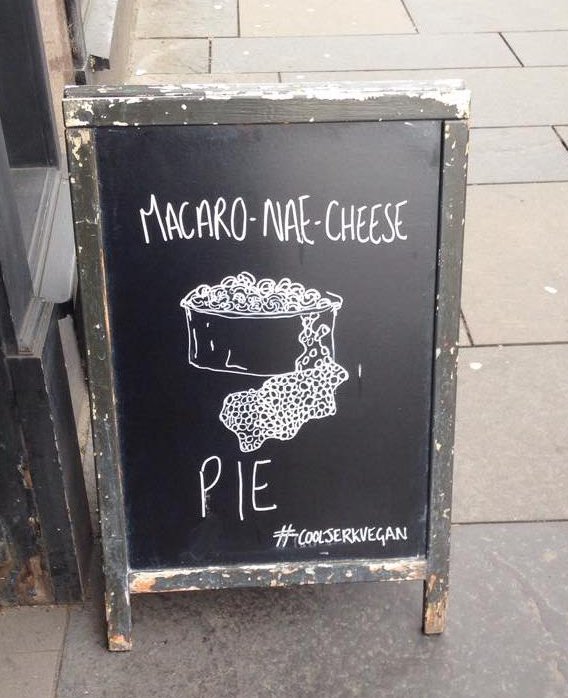 MACARO-NAE-CHEESE
PIE
#COOLSERKVEGAN